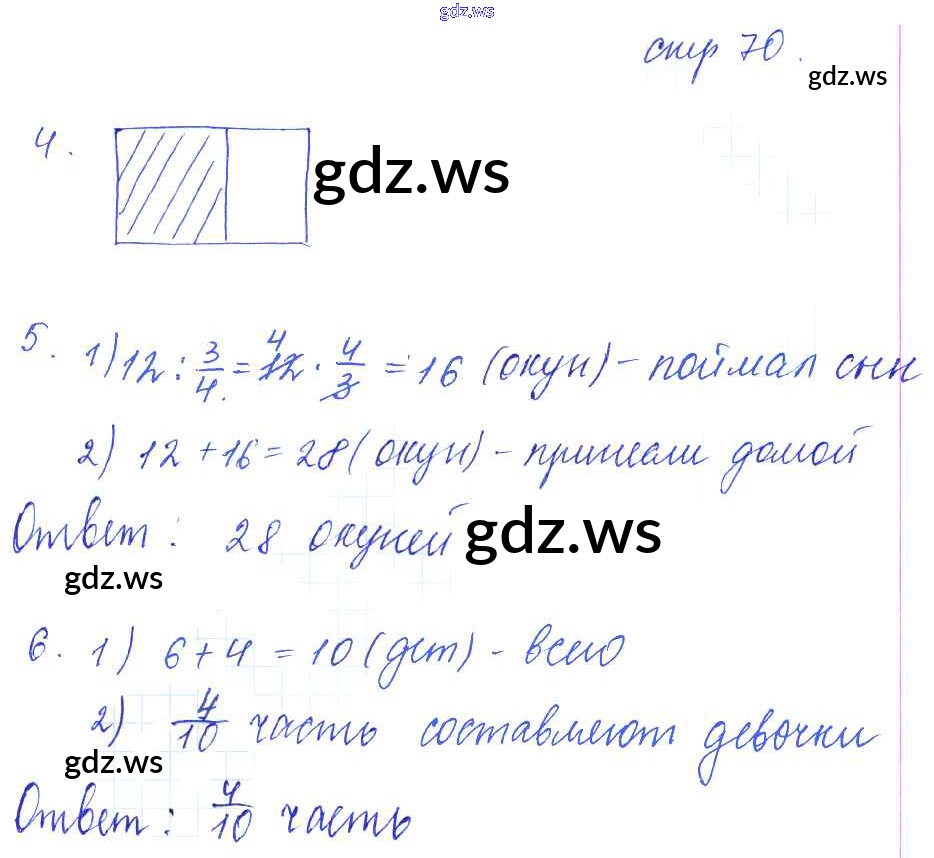 gdz.ws
стр 70.
gdz.ws
4.
gdz.ws
5. 1) 12 : 3/4 = 4 12 · 4/3 = 16 (окун) - поймал сын
2) 12 + 16 = 28 (окун) - принесли домой
Ответ : 28 окуней
gdz.ws
gdz.ws
6. 1) 6 + 4 = 10 (дет) - всего
2) 4/10 часть составляют девочки
gdz.ws
Ответ : 4/10 часть